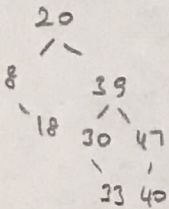 20
8 39
18 30 47
33 40